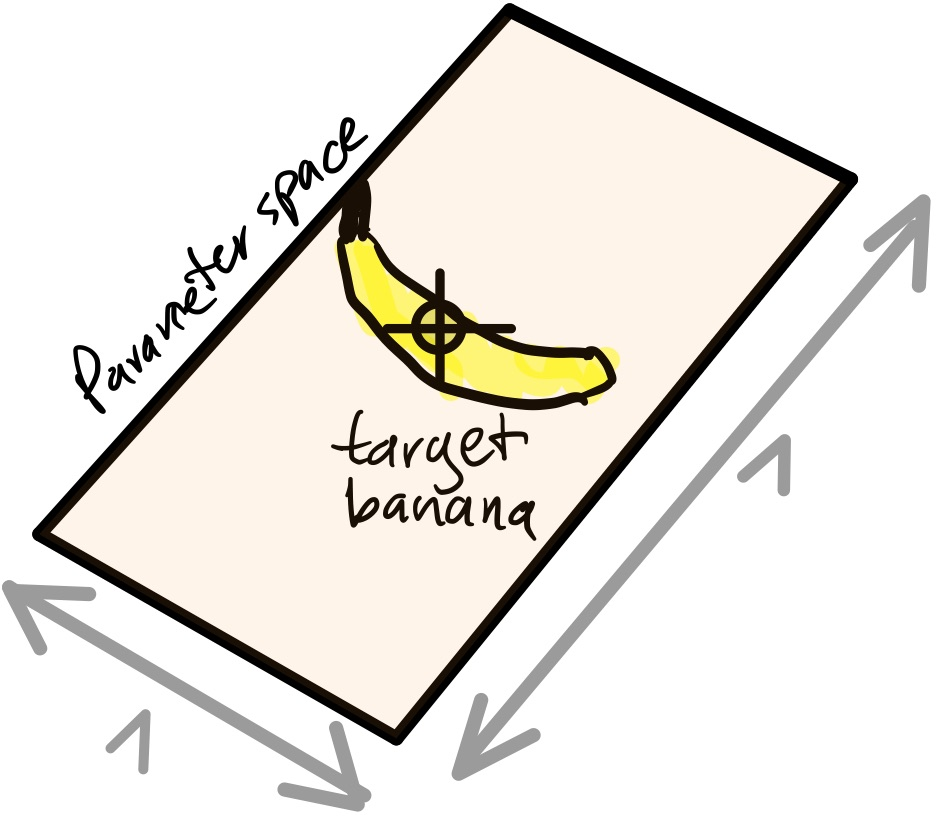 Parameter space
target
banana
1
1